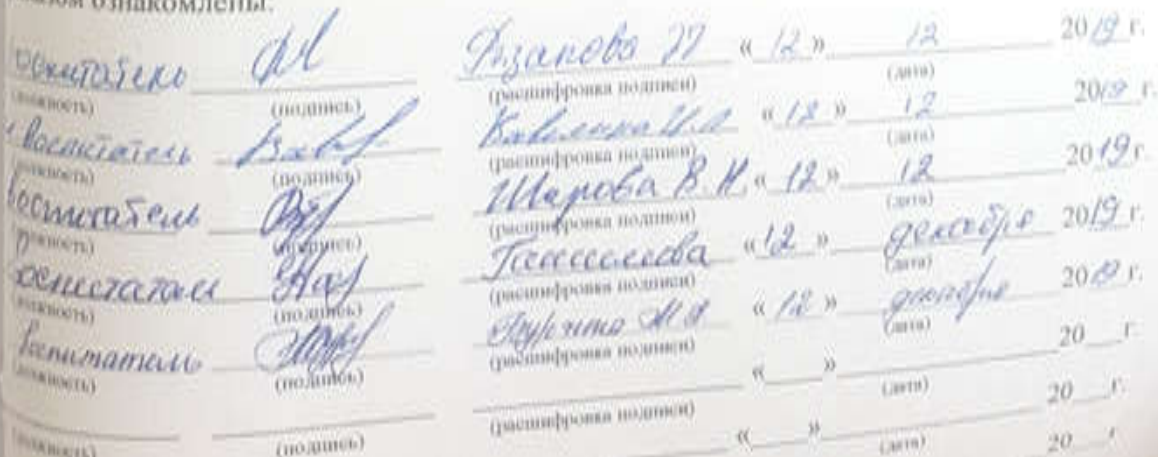 ознакомлены.
воспитатель « 12 » 12 2019 г.
(должность) (подпись) (расшифровка подписи) (дата)
воспитатель « 12 » 12 2019 г.
(должность) (подпись) (расшифровка подписи) (дата)
воспитатель Шарова В.Н. « 12 » 12 2019 г.
(должность) (подпись) (расшифровка подписи) (дата)
воспитатель « 12 » декабря 2019 г.
(должность) (подпись) (расшифровка подписи) (дата)
воспитатель « 12 » декабря 2019 г.
(должность) (подпись) (расшифровка подписи) (дата)
« » 20 г.
(должность) (подпись) (расшифровка подписи) (дата)
« » 20 г.
(дата)